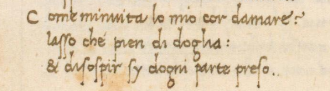 Come minuita lo mio cor damare:
lasso che pien di doglia:
& disospir sy dogni parte preso.